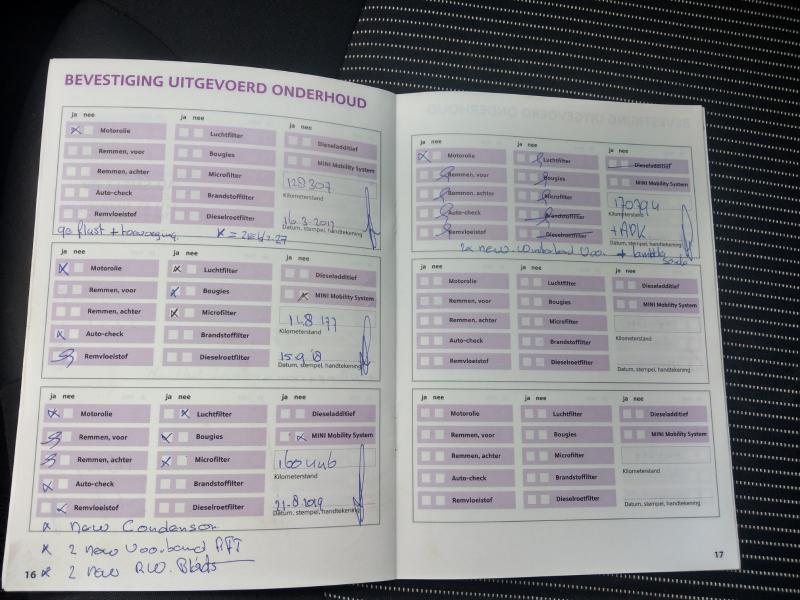 BEVESTIGING UITGEVOERD ONDERHOUD
ja nee
Motorolie
Remmen, voor
Remmen, achter
Auto-check
Remvloeistof
ja nee
Luchtfilter
Bougies
Microfilter
Brandstoffilter
Dieselroetfilter
ja nee
Dieseladditief
MINI Mobility System
128307
Kilometerstand
16.3.2017
Datum, stempel, handtekening
ja nee
Motorolie
Remmen, voor
Remmen, achter
Auto-check
Remvloeistof
ja nee
Luchtfilter
Bougies
Microfilter
Brandstoffilter
Dieselroetfilter
ja nee
Dieseladditief
MINI Mobility System
Kilometerstand
15.9.18
Datum, stempel, handtekening
ja nee
Motorolie
Remmen, voor
Remmen, achter
Auto-check
Remvloeistof
ja nee
Luchtfilter
Bougies
Microfilter
Brandstoffilter
Dieselroetfilter
ja nee
Dieseladditief
MINI Mobility System
Kilometerstand
21-8-2019
Datum, stempel, handtekening
x new Condensor
x 2 new Voorband RFT
x 2 new R.W. Blads
16
ja nee
Motorolie
Remmen, voor
Remmen, achter
Auto-check
Remvloeistof
ja nee
Luchtfilter
Bougies
Microfilter
Brandstoffilter
Dieselroetfilter
ja nee
Dieseladditief
MINI Mobility System
170794
Kilometerstand
+APK
Datum, stempel, handtekening
2x new Winterband Voor + lambda
ja nee
Motorolie
Remmen, voor
Remmen, achter
Auto-check
Remvloeistof
ja nee
Luchtfilter
Bougies
Microfilter
Brandstoffilter
Dieselroetfilter
ja nee
Dieseladditief
MINI Mobility System
Kilometerstand
Datum, stempel, handtekening
ja nee
Motorolie
Remmen, voor
Remmen, achter
Auto-check
Remvloeistof
ja nee
Luchtfilter
Bougies
Microfilter
Brandstoffilter
Dieselroetfilter
ja nee
Dieseladditief
MINI Mobility System
Kilometerstand
Datum, stempel, handtekening
17